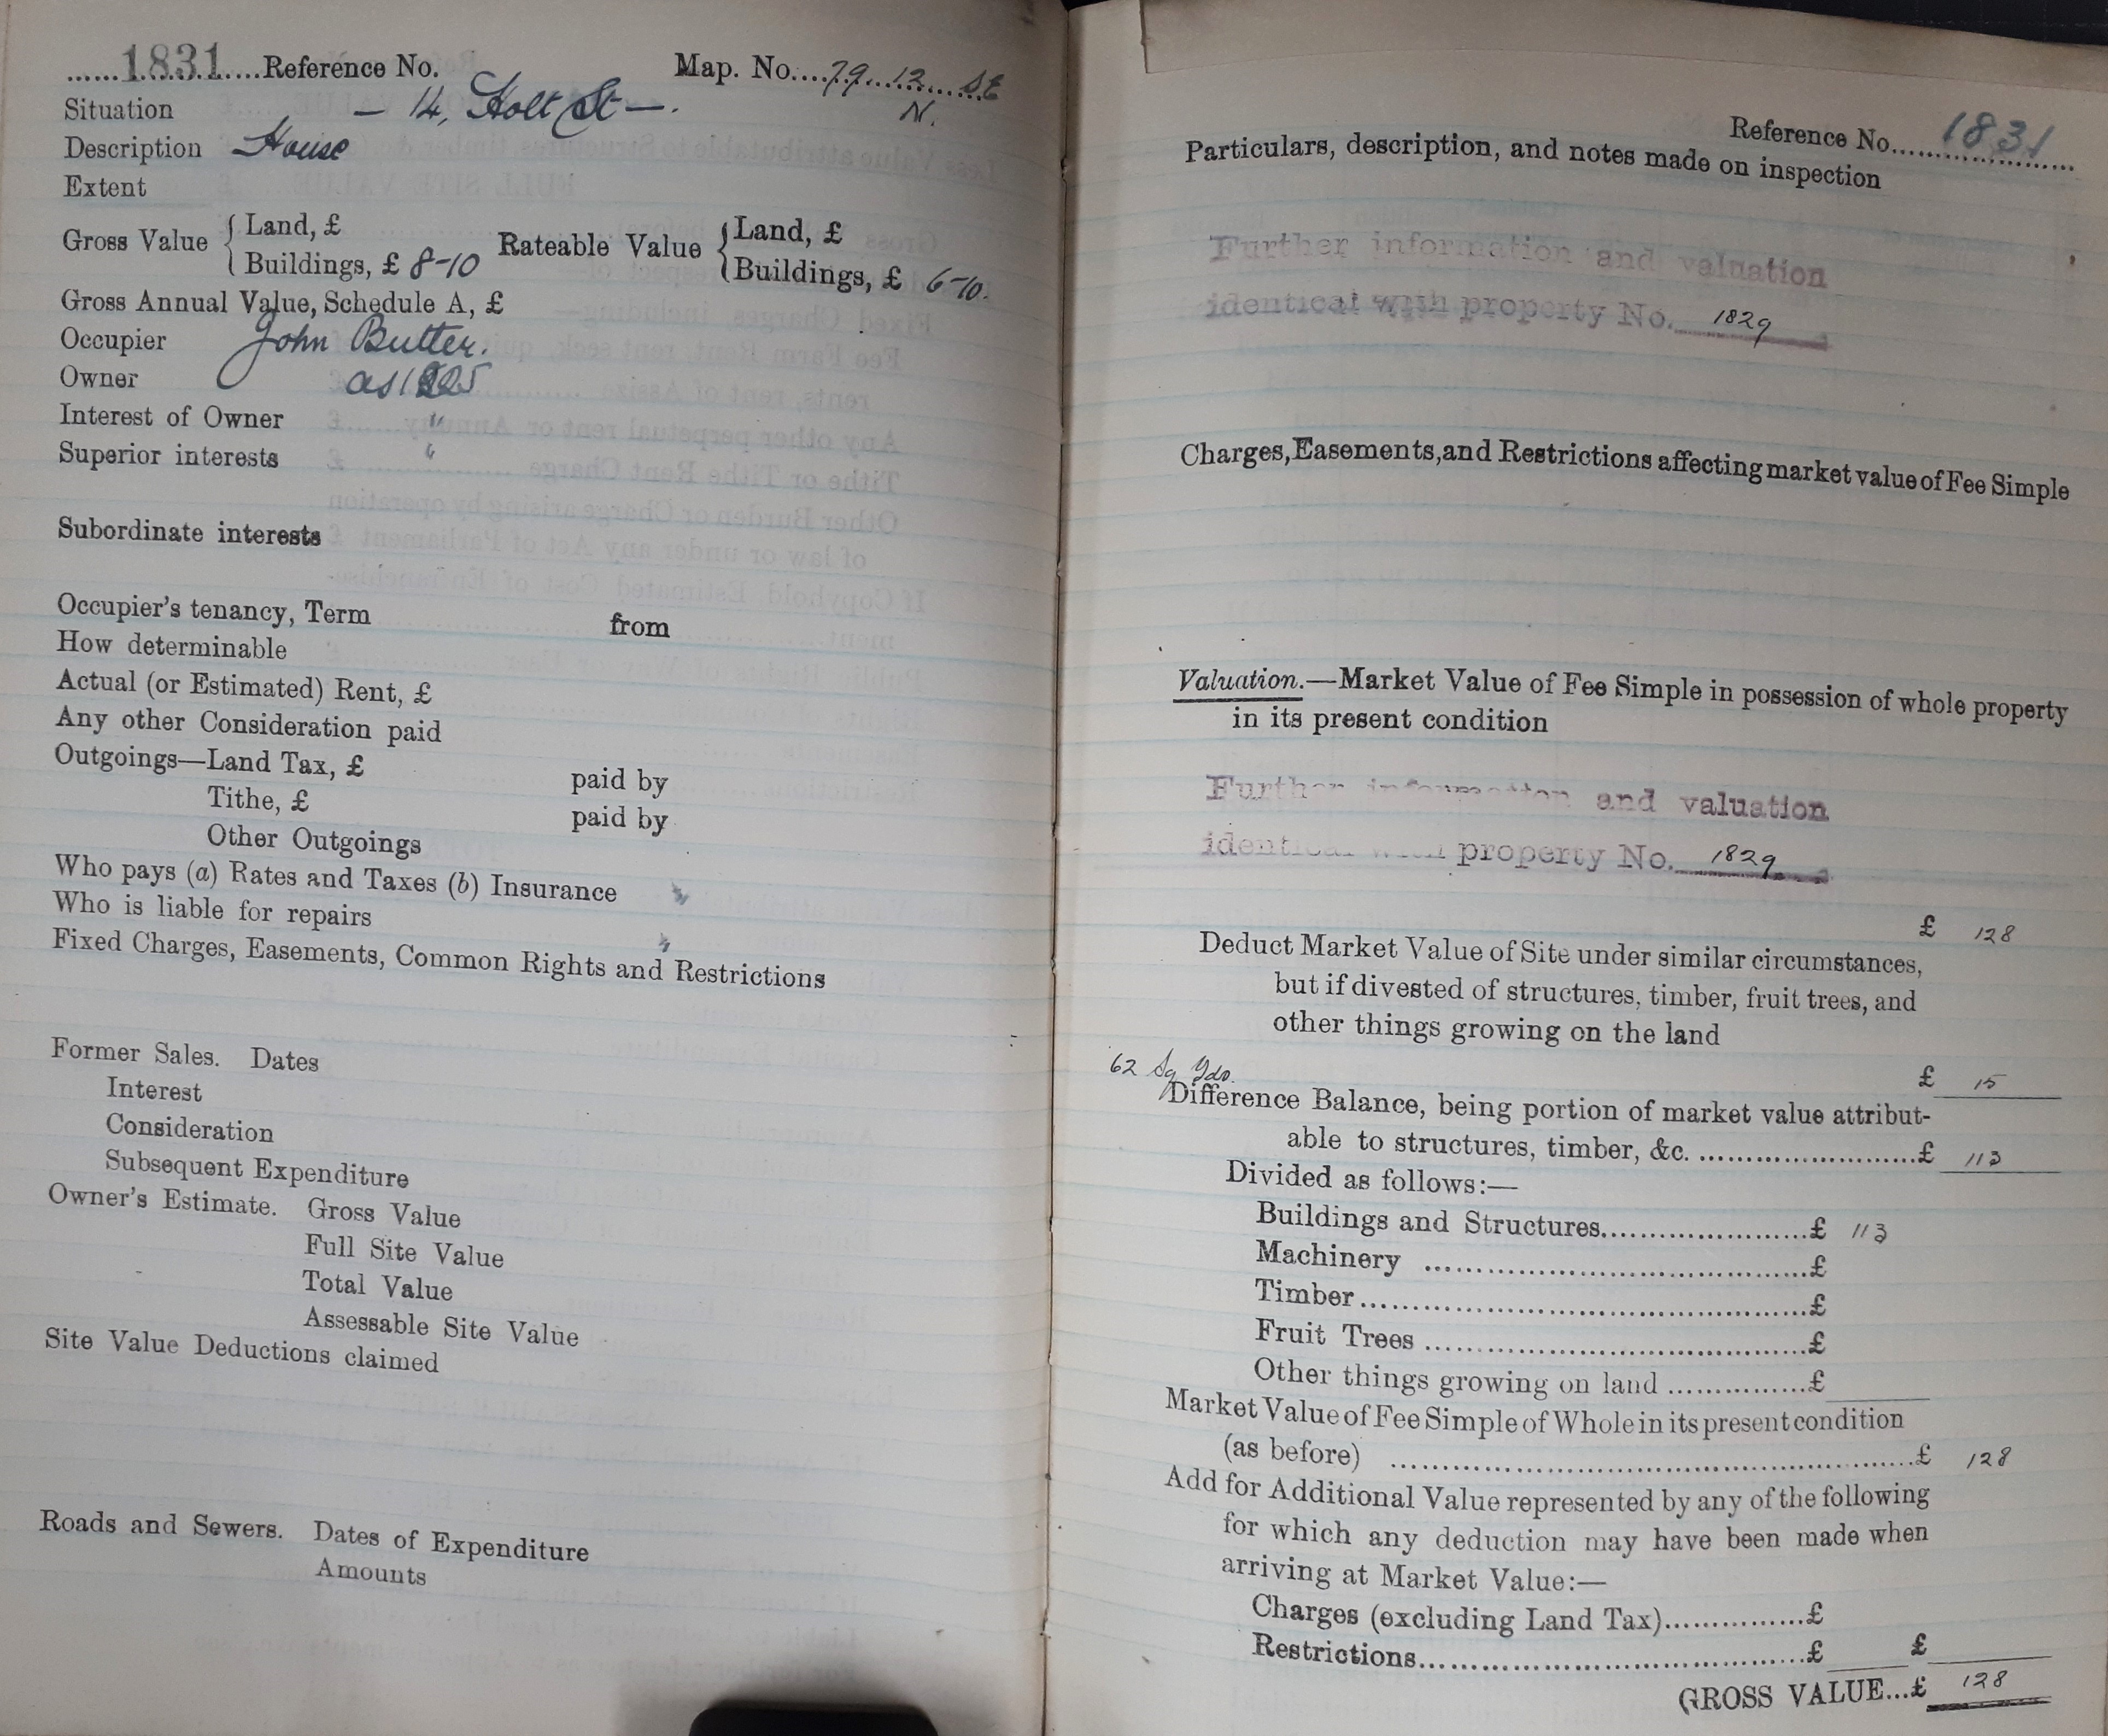 ......1831....Reference No. Map. No....79...12......SE
N.
Situation — 14, Holt St —.
Description House
Extent
Gross Value { Land, £ Rateable Value { Land, £
Buildings, £ 8-10 Buildings, £ 6-10.
Gross Annual Value, Schedule A, £
Occupier John Butter.
Owner as 1825
Interest of Owner "
Superior interests "
Subordinate interests
Occupier's tenancy, Term from
How determinable
Actual (or Estimated) Rent, £
Any other Consideration paid
Outgoings—Land Tax, £ paid by
Tithe, £ paid by
Other Outgoings
Who pays (a) Rates and Taxes (b) Insurance
Who is liable for repairs
Fixed Charges, Easements, Common Rights and Restrictions
Former Sales. Dates
Interest
Consideration
Subsequent Expenditure
Owner's Estimate. Gross Value
Full Site Value
Total Value
Assessable Site Value
Site Value Deductions claimed
Roads and Sewers. Dates of Expenditure
Amounts
Reference No....1831...
Particulars, description, and notes made on inspection
Further information and valuation
identical with property No. 1829
Charges, Easements, and Restrictions affecting market value of Fee Simple
Valuation.—Market Value of Fee Simple in possession of whole property
in its present condition
Further information and valuation
identical with property No. 1829
£ 128
Deduct Market Value of Site under similar circumstances,
but if divested of structures, timber, fruit trees, and
other things growing on the land
62 Sq Yds. £ 15
Difference Balance, being portion of market value attribut-
able to structures, timber, &c. ..........................£ 113
Divided as follows:—
Buildings and Structures.......................£ 113
Machinery ...........................................£
Timber..................................................£
Fruit Trees ...........................................£
Other things growing on land ...............£
Market Value of Fee Simple of Whole in its present condition
(as before) .........................................................£ 128
Add for Additional Value represented by any of the following
for which any deduction may have been made when
arriving at Market Value:—
Charges (excluding Land Tax)...............£
Restrictions..........................................£ £
GROSS VALUE...£ 128